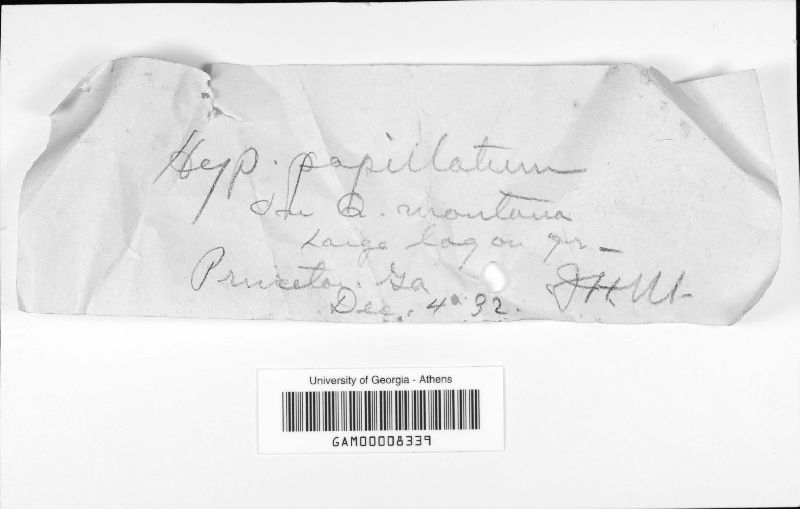 Hyp. papillatum
On Q. montana
Large log on gr.
Princeton. Ga
J.H.M.
Dec. 4 '32.
University of Georgia - Athens
GAM00008339